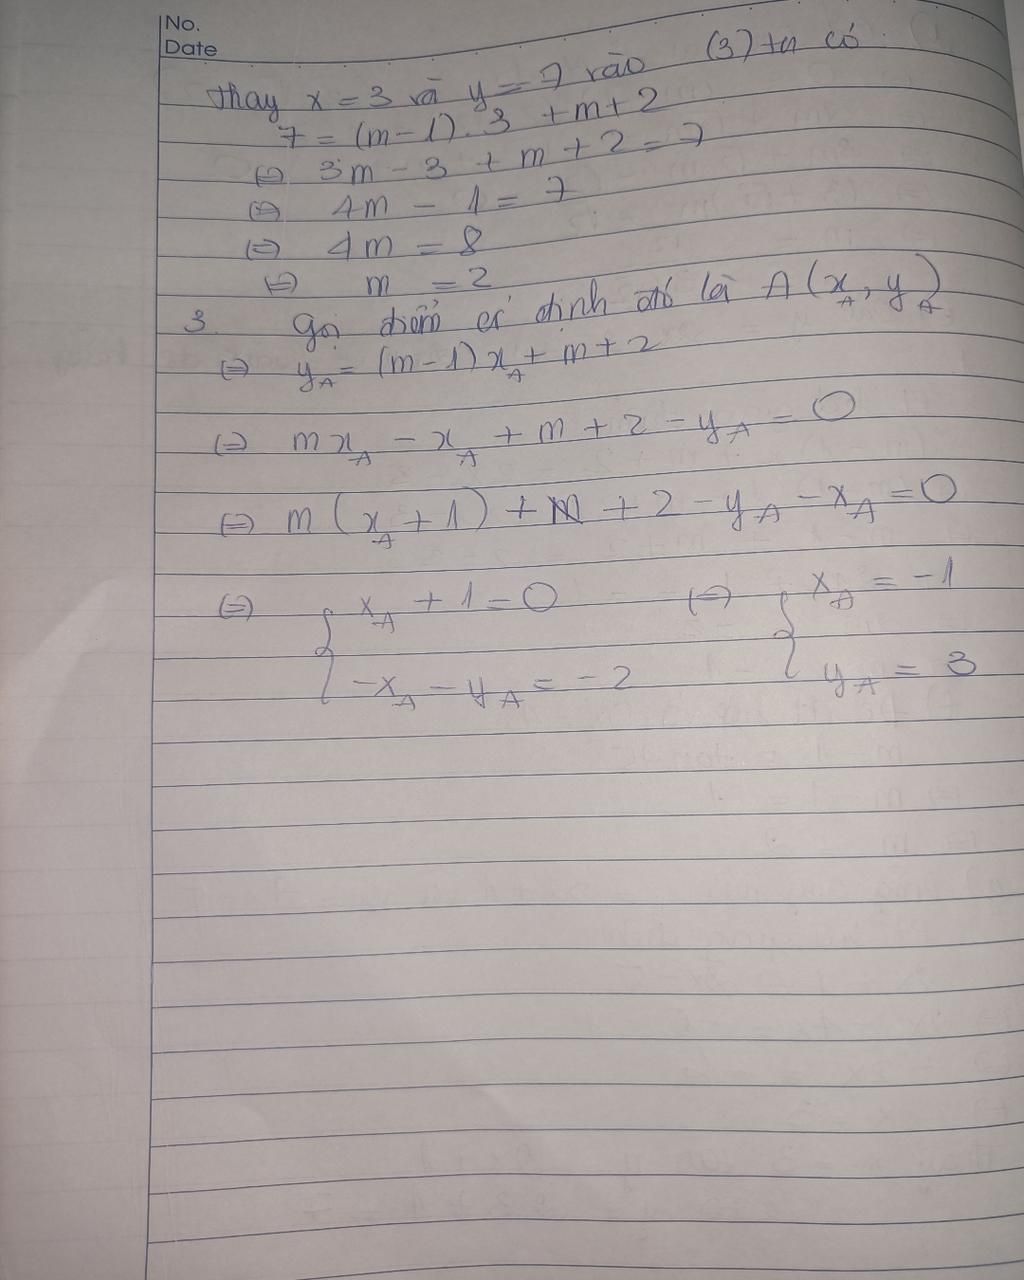 No.
Date
Thay x = 3 và y = 7 vào (3) ta có
7 = (m-1).3 + m+2
⇔ 3m - 3 + m + 2 = 7
⇔ 4m - 1 = 7
⇔ 4m = 8
⇔ m = 2
3. Gọi điểm cố định đó là A(x_A, y_A)
⇔ y_A = (m-1)x_A + m + 2
⇔ mx_A - x_A + m + 2 - y_A = 0
⇔ m(x_A + 1) + m + 2 - y_A - x_A = 0
⇔ { x_A + 1 = 0 ⇔ { x_A = -1
-x_A - y_A = -2 y_A = 3